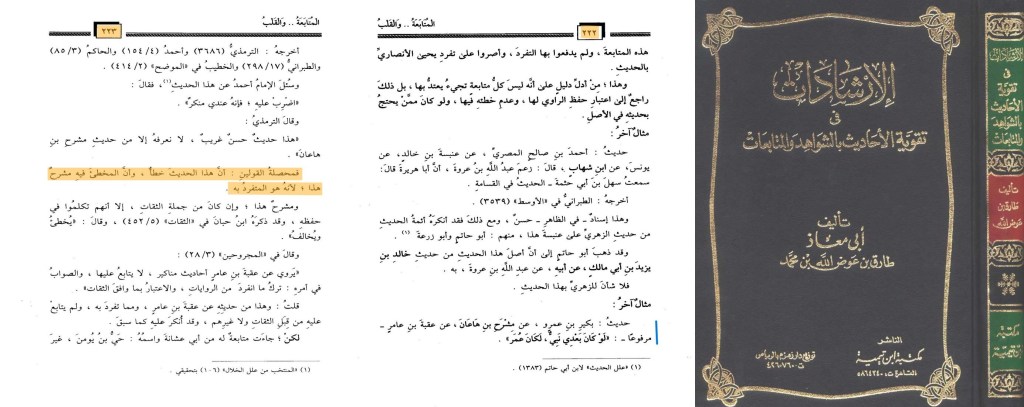 الإرشادات
في
تقوية الأحاديث
بالشواهد
والمتابعات
طارق بن
عوض الله
مكتبة
ابن تيمية
الإرشادات
في
تقوية الأحاديث بالشواهد والمتابعات
تأليف
أبي معاذ
طارق بن عوض الله بن محمد
الناشر
مكتبة ابن تيمية
القاهرة ت: ٥٨٦٤٢٤٠
المتابعة .. والقلب
٢٢٢
هذه المتابعة ، ولم يدفعوا بها التفرد ، وأصروا على تفرد يحيى الأنصاري
بالحديث .
وهذا ؛ مِنْ أدلِّ دليلٍ على أنَّه ليسَ كلُّ متابعةٍ تجيءُ يعتدُّ بها ، بل ذلكَ
راجعٌ إلى اعتبارِ حفظِ الراوي لها ، وعدمِ خطئِهِ فيها ، ولو كانَ ممَّنْ يحتجُّ
بحديثِهِ في الأصلِ .
مثالٌ آخرُ :
حديثُ : أحمدَ بنِ صالحٍ المصريِّ ، عن عنبسةَ بنِ خالدٍ، عن
يونسَ، عن ابنِ شهابٍ ، قالَ : زعمَ عبدُ اللَّهِ بنُ عروةَ ، أنَّ أبا هريرةَ قالَ:
سمعتُ سهلَ بنَ أبي حثمةَ ـ الحديثُ في القسامةِ .
أخرجهُ : الطبرانيُّ في «الأوسط» (٣٥٣٩) .
وهذا إسنادٌ ـ في الظاهرِ ـ حسنٌ ، ومع ذلكَ فقد أنكرَهُ أئمةُ الحديثِ
من حديثِ الزهريِّ على عنبسةَ هذا ، منهم : أبو حاتمٍ وأبو زرعةَ (١) .
وقد ذهبَ أبو حاتمٍ إلى أنَّ أصلَ هذا الحديثِ من حديثِ خالدِ بنِ
يزيدَ بنِ أبي مالكٍ ، عن أبيه ، عن عبدِ اللَّهِ بنِ عروةَ ، به .
فلا شأنَ للزهريِّ بهذا الحديثِ .
مثالٌ آخرُ :
حديثُ : بكيرِ بنِ عمرٍو ، عن مشْرَحِ بنِ هَاعَانَ ، عن عقبةَ بنِ عامرٍ ـ
مرفوعًا ـ : «لَوْ كَانَ بَعْدِي نَبِيٌّ، لَكَانَ عُمَرَ» .
(١) «علل الحديث» لابن أبي حاتم (١٣٨٣) .
المتابعة .. والقلب
٢٢٣
أخرجهُ : الترمذيُّ (٣٦٨٦) وأحمدُ (١٥٤/٤) والحاكمُ (٨٥/٣)
والطبرانيُّ (٢٩٨/١٧) والخطيبُ في «الموضح» (٤١٤/٢) .
وسُئلَ الإمامُ أحمدُ عن هذا الحديثِ(١)، فقالَ :
«اضربْ عليهِ ؛ فإنَّهُ عندي منكرٌ» .
وقالَ الترمذيُّ :
«هذا حديثٌ حسنٌ غريبٌ ، لا نعرفهُ إلا من حديثِ مشرحِ بنِ
هاعانَ» .
فمحصلةُ القولينِ : أنَّ هذا الحديثَ خطأٌ ، وأنَّ المخطئَ فيهِ مشرحٌ
هذا ؛ لأنهُ هو المتفردُ به .
ومشرحٌ هذا ؛ وإن كانَ من جملةِ الثقاتِ ، إلا أنهم تكلمُوا في
حفظِهِ ، وقد ذكرَهُ ابنُ حبانَ في «الثقات» (٤٥٢/٥) ، وقالَ : «يُخطئُ
ويُخالفُ» .
وقالَ في «المجروحين» (٢٨/٣) :
«يَروي عن عقبةَ بنِ عامرٍ أحاديثَ مناكير ، لا يتابعُ عليها ، والصوابُ
في أمرِهِ : تركُ ما انفردَ من الرواياتِ ، والاعتبارُ بما وافقَ الثقات» .
قلتُ : وهذا من حديثِهِ عن عقبةَ بنِ عامرٍ ، ومما تفردَ به ، ولم يتابعْ
عليهِ من قِبَلِ الثقاتِ ولا غيرِهم ، وقد أُنكرَ عليهِ كما سبقَ .
لكنْ ؛ جاءت متابعةٌ له من أبي عشانةَ واسمُهُ : حَيُّ بنُ يُومنَ ، غيرَ
(١) «المنتخب من علل الخلال» (١٠٦) بتحقيقي .